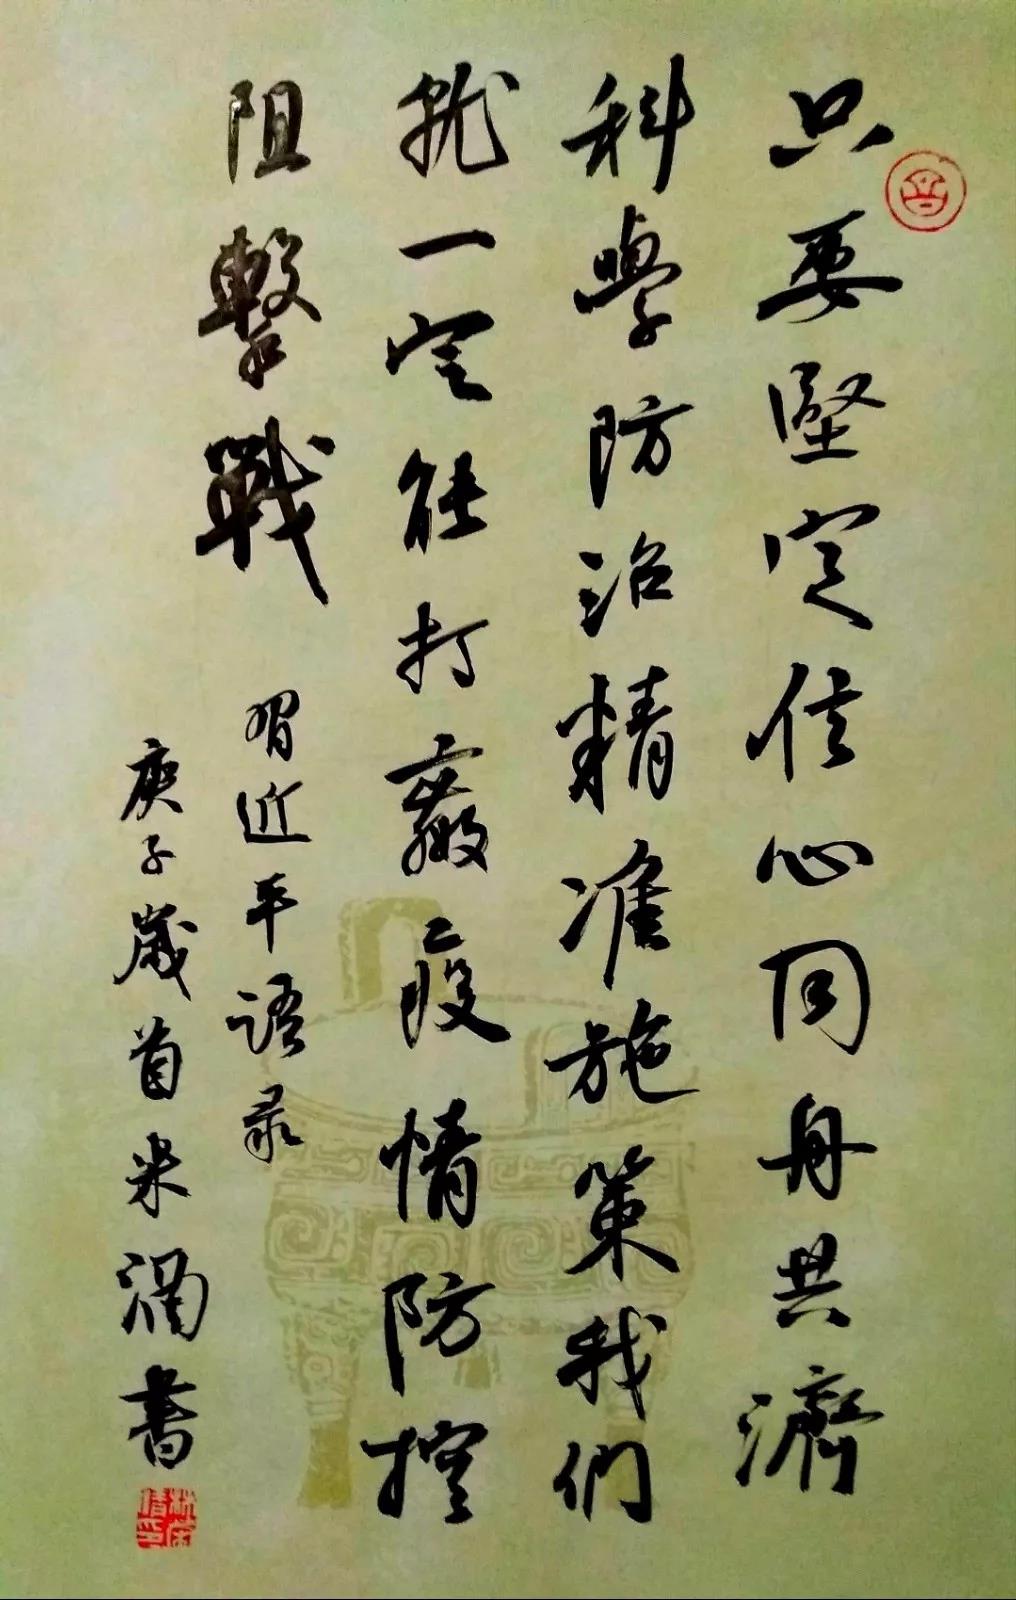 只要堅定信心同舟共濟
科學防治精准施策我們
就一定能打贏疫情防控
阻擊戰
習近平語录
庚子歲首米滿書